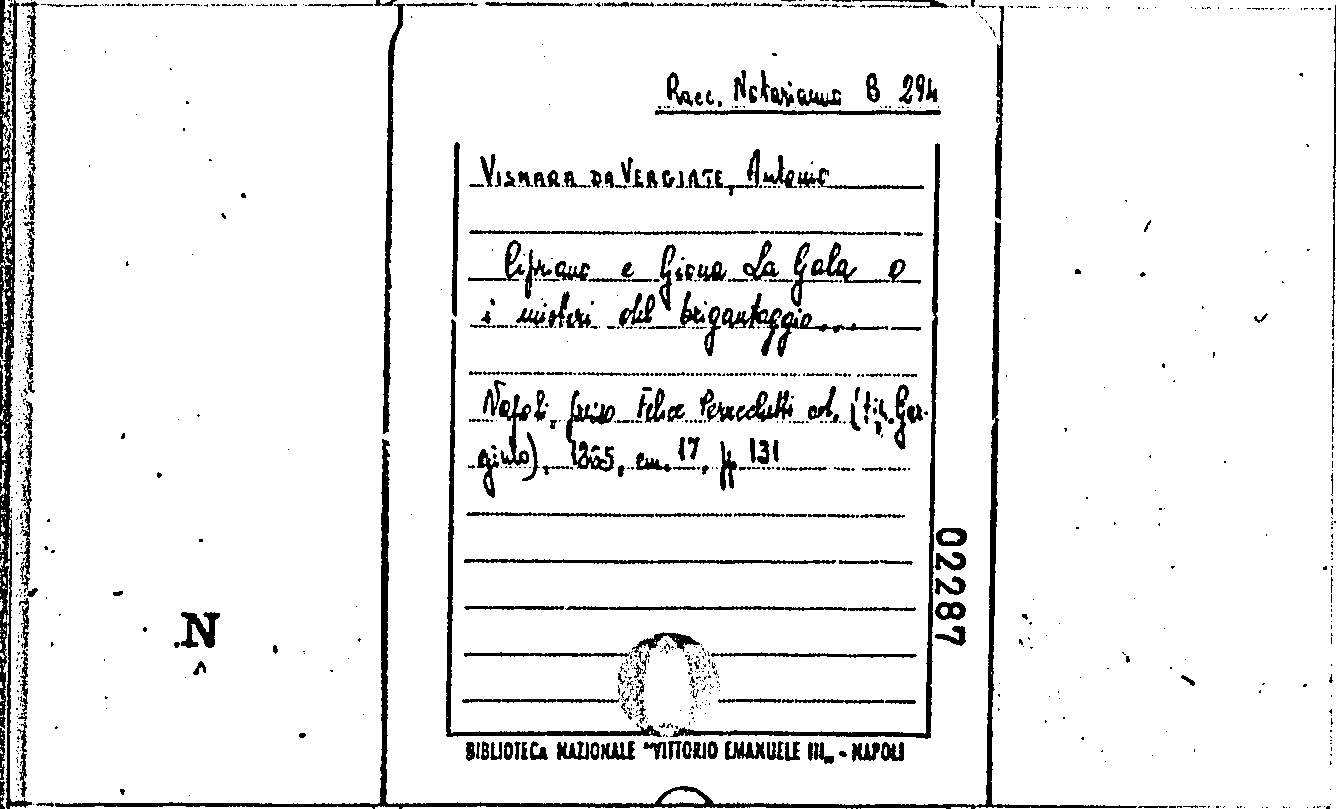 Racc. Notarianno B 294
VISMARA DA VERGIATE, Antonio
Cipriano e Giona La Gala o
i misteri del brigantaggio...
Napoli, presso Felice Perrecchetti ed. (tip. Gar-
giulo), 1865, cm. 17, pp. 131
02287
N
BIBLIOTECA NAZIONALE "VITTORIO EMANUELE III„ - NAPOLI